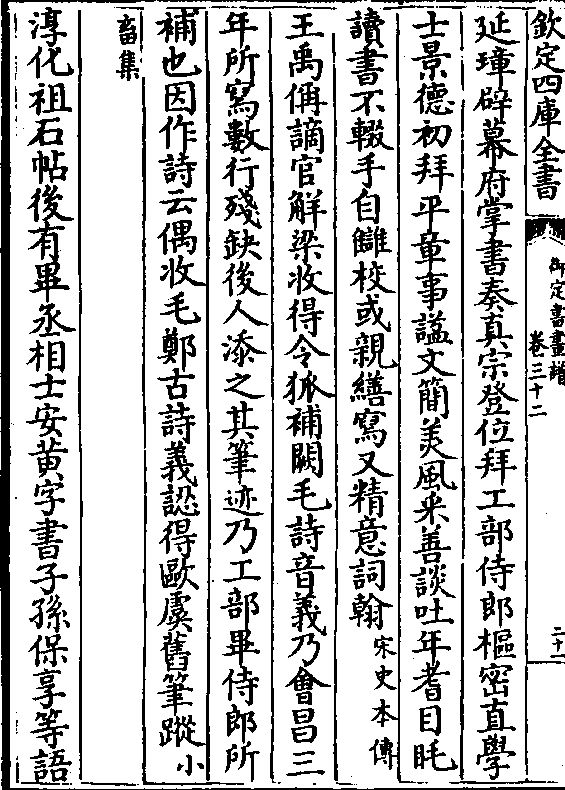 欽定四庫全書
御定書畫譜
卷三十二
二十一
延璋辟幕府掌書奏真宗登位拜工部侍郎樞密直學
士景德初拜平章事謚文簡美風采善談吐年耆目眊
讀書不輟手自讎校或親繕寫又精意詞翰宋史本傳
王禹偁謫官解梁收得令狐補闕毛詩音義乃會昌三
年所寫數行殘缺後人添之其筆迹乃工部畢侍郎所
補也因作詩云偶收毛鄭古詩義認得歐虞舊筆蹤小
畜集
淳化祖石帖後有畢丞相士安黃字書子孫保享等語